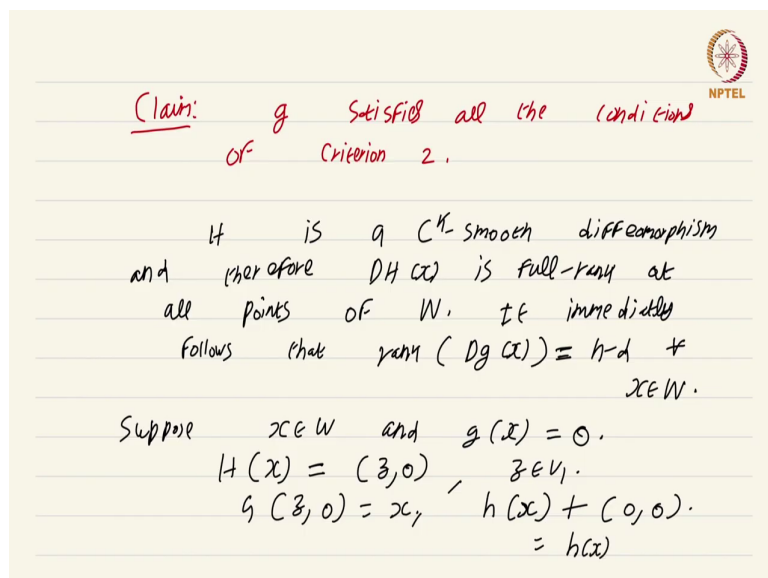 NPTEL
Claim: g satisfies all the conditions
of Criterion 2.
H is a C^k-smooth diffeomorphism
and therefore DH(x) is full-rank at
all points of W. It immedictly
follows that rank (Dg(x)) = n-d ∀
x∈W.
Suppose x∈W and g(x) = 0.
H(x) = (z,0), z∈V₁.
G(z,0) = x, h(x) + (0,0).
= h(x)